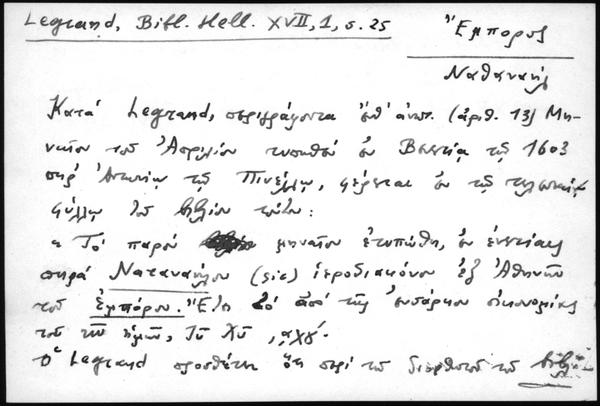 Legrand, Bibl. Hell. XVII, 1, σ. 25
Ἔμπορος
Ναθαναήλ
Κατά Legrand, περιγράφοντα ὑπ' (ἀριθ. 13) Μη-
ναῖον τοῦ Ἀπριλίου τυπωθέν ἐν Βενετίᾳ τῷ 1603
παρ' Ἀντωνίῳ τῷ Πινέλλῳ, φέρεται ἐν τῷ τελευταίῳ
φύλλῳ τοῦ βιβλίου τούτου:
« Τό παρόν μηναῖον ἐτυπώθη, ἐν ἐνετίαις
παρά Ναταναήλου (sic) ἱεροδιακόνου ἐξ Ἀθηνῶν
τοῦ Ἐμπόρου. Ἔτει ἀπό τῆς ἐνσάρκου οἰκονομίας
τοῦ κυ ἡμῶν, Ἰῦ Χῦ ͵αχγ΄.
Ὁ Legrand προσθέτει ὅτι περί τοῦ διορθωτοῦ τοῦ βιβλίου